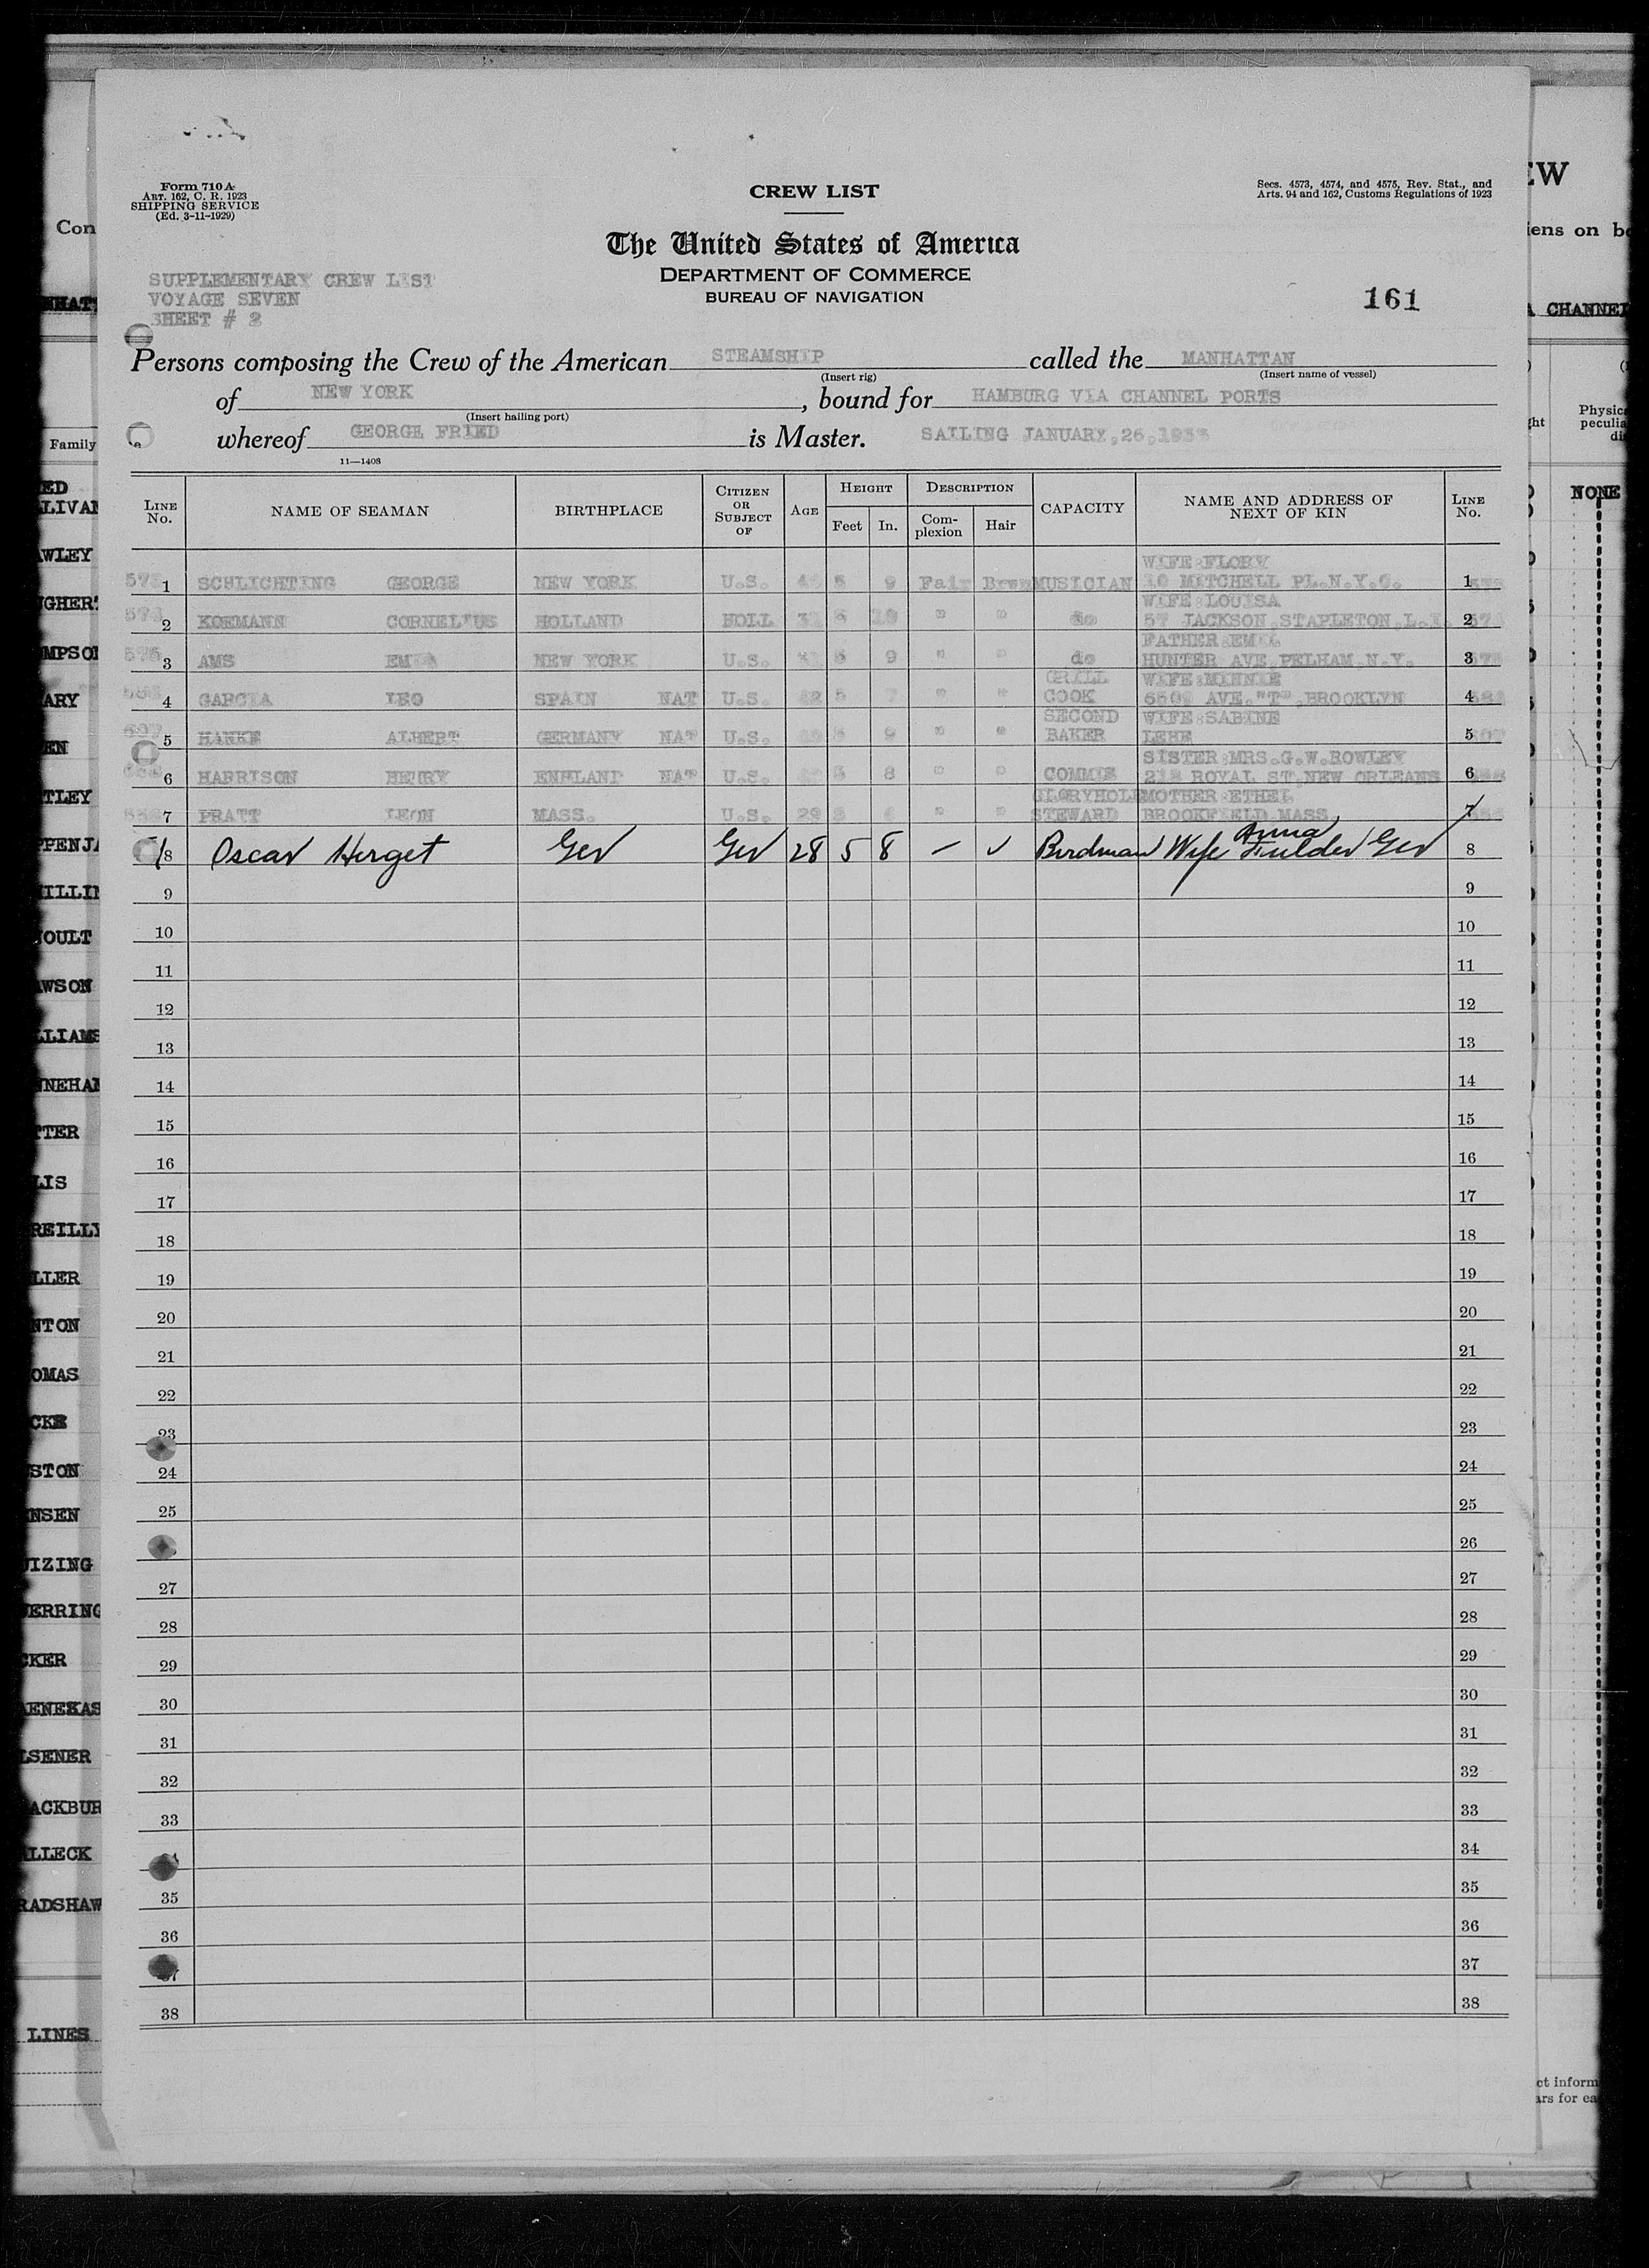 Form 710 A
Art. 162, C. R. 1923
SHIPPING SERVICE
(Ed. 3-11-1929)
CREW LIST
Secs. 4573, 4574, and 4575, Rev. Stat., and
Arts. 94 and 162, Customs Regulations of 1923
The United States of America
DEPARTMENT OF COMMERCE
BUREAU OF NAVIGATION
SUPPLEMENTARY CREW LIST
VOYAGE SEVEN
SHEET # 2
161
Persons composing the Crew of the American STEAMSHIP called the MANHATTAN
(Insert rig) (Insert name of vessel)
of NEW YORK, bound for HAMBURG VIA CHANNEL PORTS
(Insert hailing port)
whereof GEORGE FRIED is Master. SAILING JANUARY,26,1933
11—1408
LINE No. NAME OF SEAMAN BIRTHPLACE CITIZEN OR SUBJECT OF AGE HEIGHT Feet In. DESCRIPTION Complexion Hair CAPACITY NAME AND ADDRESS OF NEXT OF KIN LINE No.
WIFE:FLORY
1 SCHLICHTING GEORGE NEW YORK U.S. 5 9 Fair Brwn MUSICIAN 10 MITCHELL PL.N.Y.C. 1
WIFE:LOUISA
2 KOEMANN CORNELIUS HOLLAND HOLL 5 10 " " do 57 JACKSON,STAPLETON,L.I. 2
FATHER:EMIL
3 AMS EMIL NEW YORK U.S. 5 9 " " do HUNTER AVE.PELHAM.N.Y. 3
GRILL WIFE:MINNIE
4 GARCIA LEO SPAIN NAT U.S. 5 7 " " COOK AVE."T",BROOKLYN 4
SECOND WIFE:SABINE
5 HANKE ALBERT GERMANY NAT U.S. 5 9 " " BAKER LEHE 5
SISTER:MRS.G.W.ROWLEY
6 HARRISON HENRY ENHLAND NAT U.S. 5 8 " " COMMIS ROYAL ST.NEW ORLEANS 6
GLORYHOLE MOTHER:ETHEL
7 PRATT LEON MASS. U.S. 29 5 " " STEWARD BROOKFIELD,MASS. 7
Anna
8 Oscar Herget Ger Ger 28 5 8 – ✓ Wife Ger 8
9 9
10 10
11 11
12 12
13 13
14 14
15 15
16 16
17 17
18 18
19 19
20 20
21 21
22 22
23 23
24 24
25 25
26
27 27
28 28
29 29
30 30
31 31
32 32
33 33
34
35 35
36 36
37 37
38 38